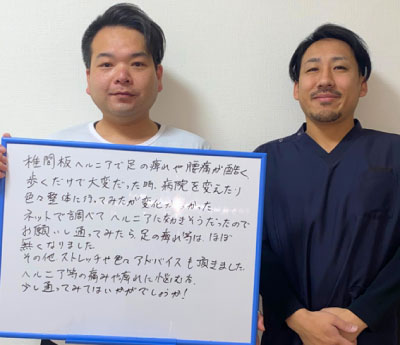 椎間板ヘルニアで足の痺れや腰痛が酷く
歩くだけで大変だった時、病院を変えたり
色々整体に行ってみたが変化がなかった
ネットで調べてヘルニアに効きそうだったので
お願いし通ってみたら足の痺れ等はほぼ
無くなりました
その他ストレッチや色々アドバイスも頂きました
ヘルニア等の痛みや痺れに悩む方、
少し通ってみてはいかがでしょうか!